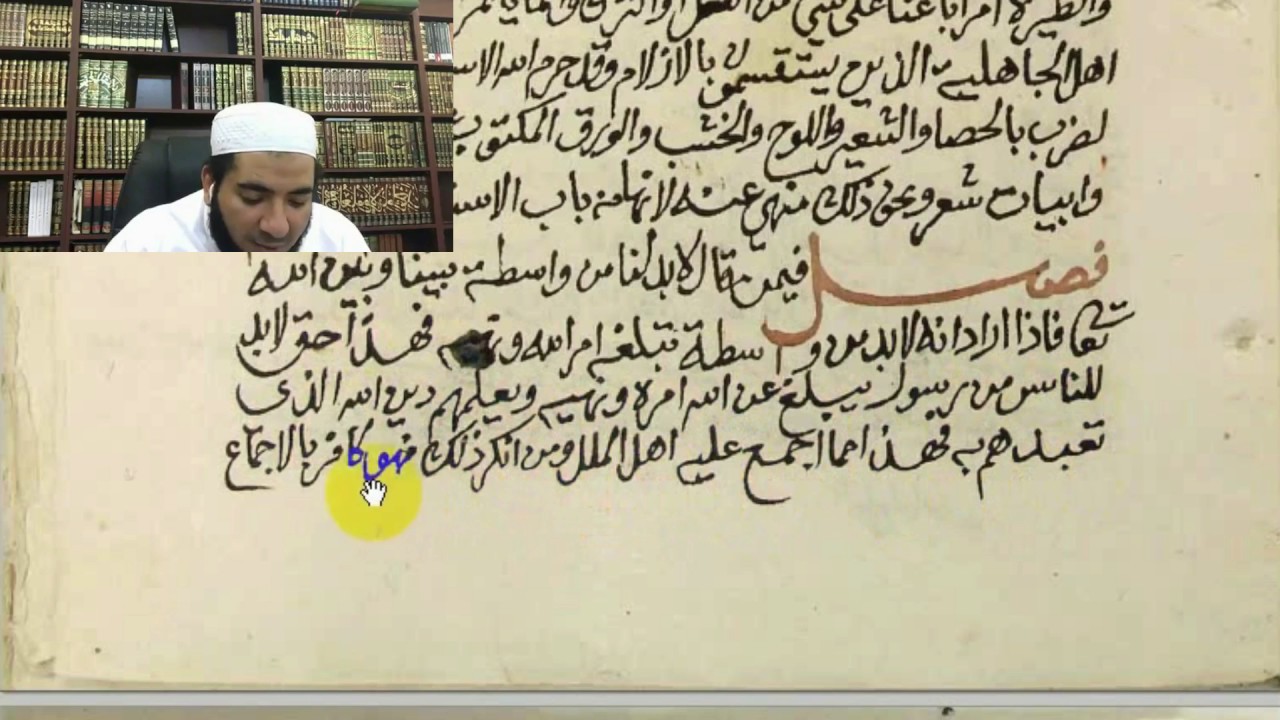 اهل الجاهلية الذين يستقسمون بالازلام وقد حرم الله الاس
لضرب بالحصا والشعير واللوح والخشب والورق المكتوب
وابيات شعر ونحو ذلك منهي عنه لانها من باب الاست
فصل فيمن قال لابد لنا من واسطة بيننا وبين الله
تعا فاذا اراد انه لابد من واسطة تبلغه امر الله فهذا حق لابد
للناس من رسول يبلغ عن الله امره ونهيه ويعلمهم دين الله الذى
تعبدهم به فهذا مما اجمع عليه اهل الملل ومن انكر ذلك فهو كافر بالاجماع